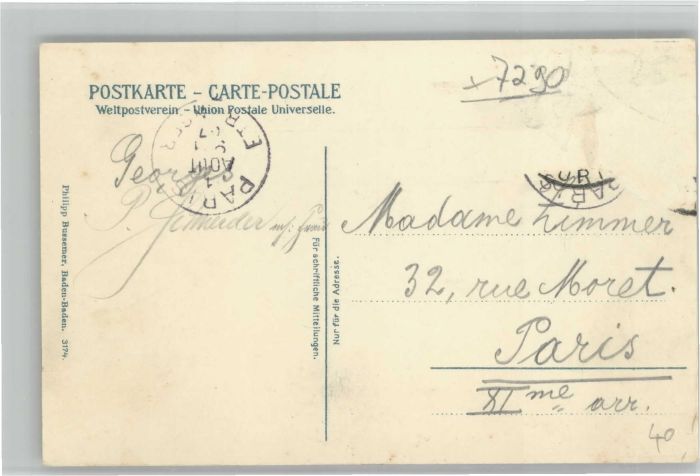 POSTKARTE – CARTE-POSTALE
Weltpostverein – Union Postale Universelle.
7290
PARIS
ETRANGER
AOUT
07
Georges
P. Schneider
Madame Zimmer
32, rue Moret.
Paris
XIme arr.
40
Für schriftliche Mitteilungen.
Nur für die Adresse.
Philipp Bussemer, Baden-Baden. 3174.